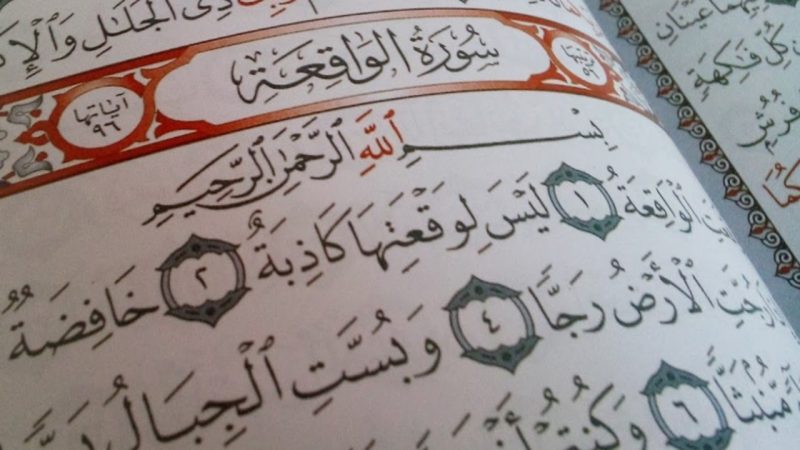 ذِي الْجَلَٰلِ وَالْإِكْ
سُورَةُ الوَاقِعَةِ
آيَاتُهَا
٩٦
بِسْمِ اللَّهِ الرَّحْمَٰنِ الرَّحِيمِ
الْوَاقِعَةُ ١ لَيْسَ لِوَقْعَتِهَا كَاذِبَةٌ ٢ خَافِضَةٌ
رُجَّتِ الْأَرْضُ رَجًّا ٤ وَبُسَّتِ الْجِبَالُ
مُّنۢبَثًّا ٦ وَكُنتُمْ
عَيْنَانِ
كُلِّ فَٰكِهَةٍ
فُرُشٍ